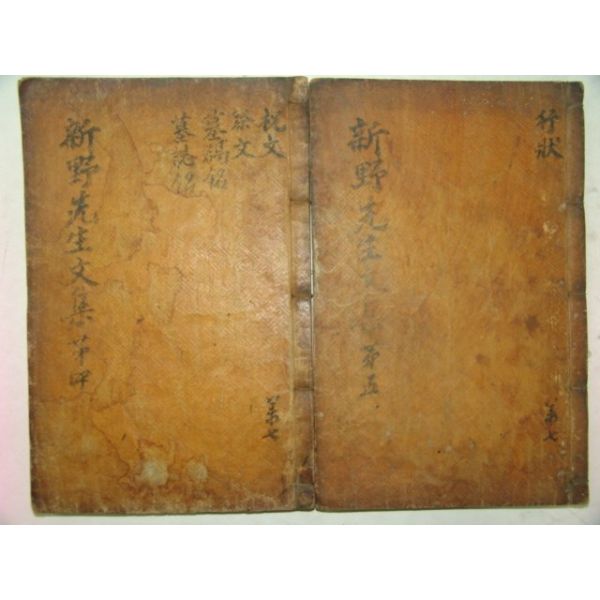 祝文
祭文
墓碣銘
墓誌銘
新野先生文集 第四
共七
行狀
新野先生文集 第五
共七